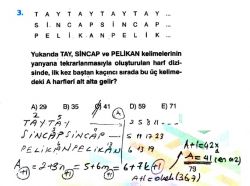 3. T A Y T A Y T A Y T A Y ...
S İ N C A P S İ N C A P ...
P E L İ K A N P E L İ K ...
Yukarıda TAY, SİNCAP ve PELİKAN kelimelerinin
yanyana tekrarlanmasıyla oluşturulan harf dizi-
sinde, ilk kez baştan kaçıncı sırada bu üç kelime-
deki A harfleri alt alta gelir?
A) 29 B) 35 C) 41 D) 59 E) 71
TAYTAY 2 5 8 11
SİNCAPSİNCAP 5 11 17 23
PELİKANPELİKAN 6 13 19
A = 2+3n = 5+6m = 6+7k
A+1=42x
A=41 (en az)
79
A+1=okek(367)